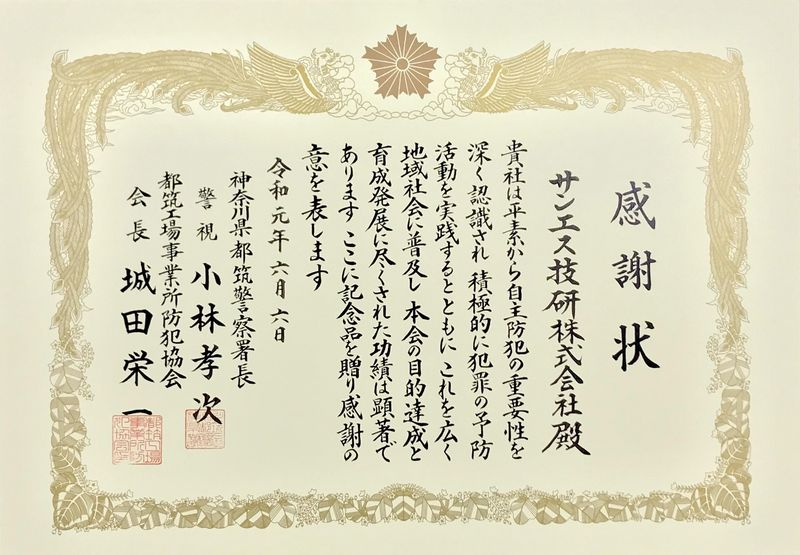 感謝状
サンエス技研株式会社殿
貴社は平素から自主防犯の重要性を
深く認識され 積極的に犯罪の予防
活動を実践するとともに これを広く
地域社会に普及し 本会の目的達成と
育成発展に尽くされた功績は顕著で
あります ここに記念品を贈り感謝の
意を表します
令和元年六月六日
神奈川県都筑警察署長
警視 小林孝次
都筑工場事業所防犯協会
会長 城田栄一